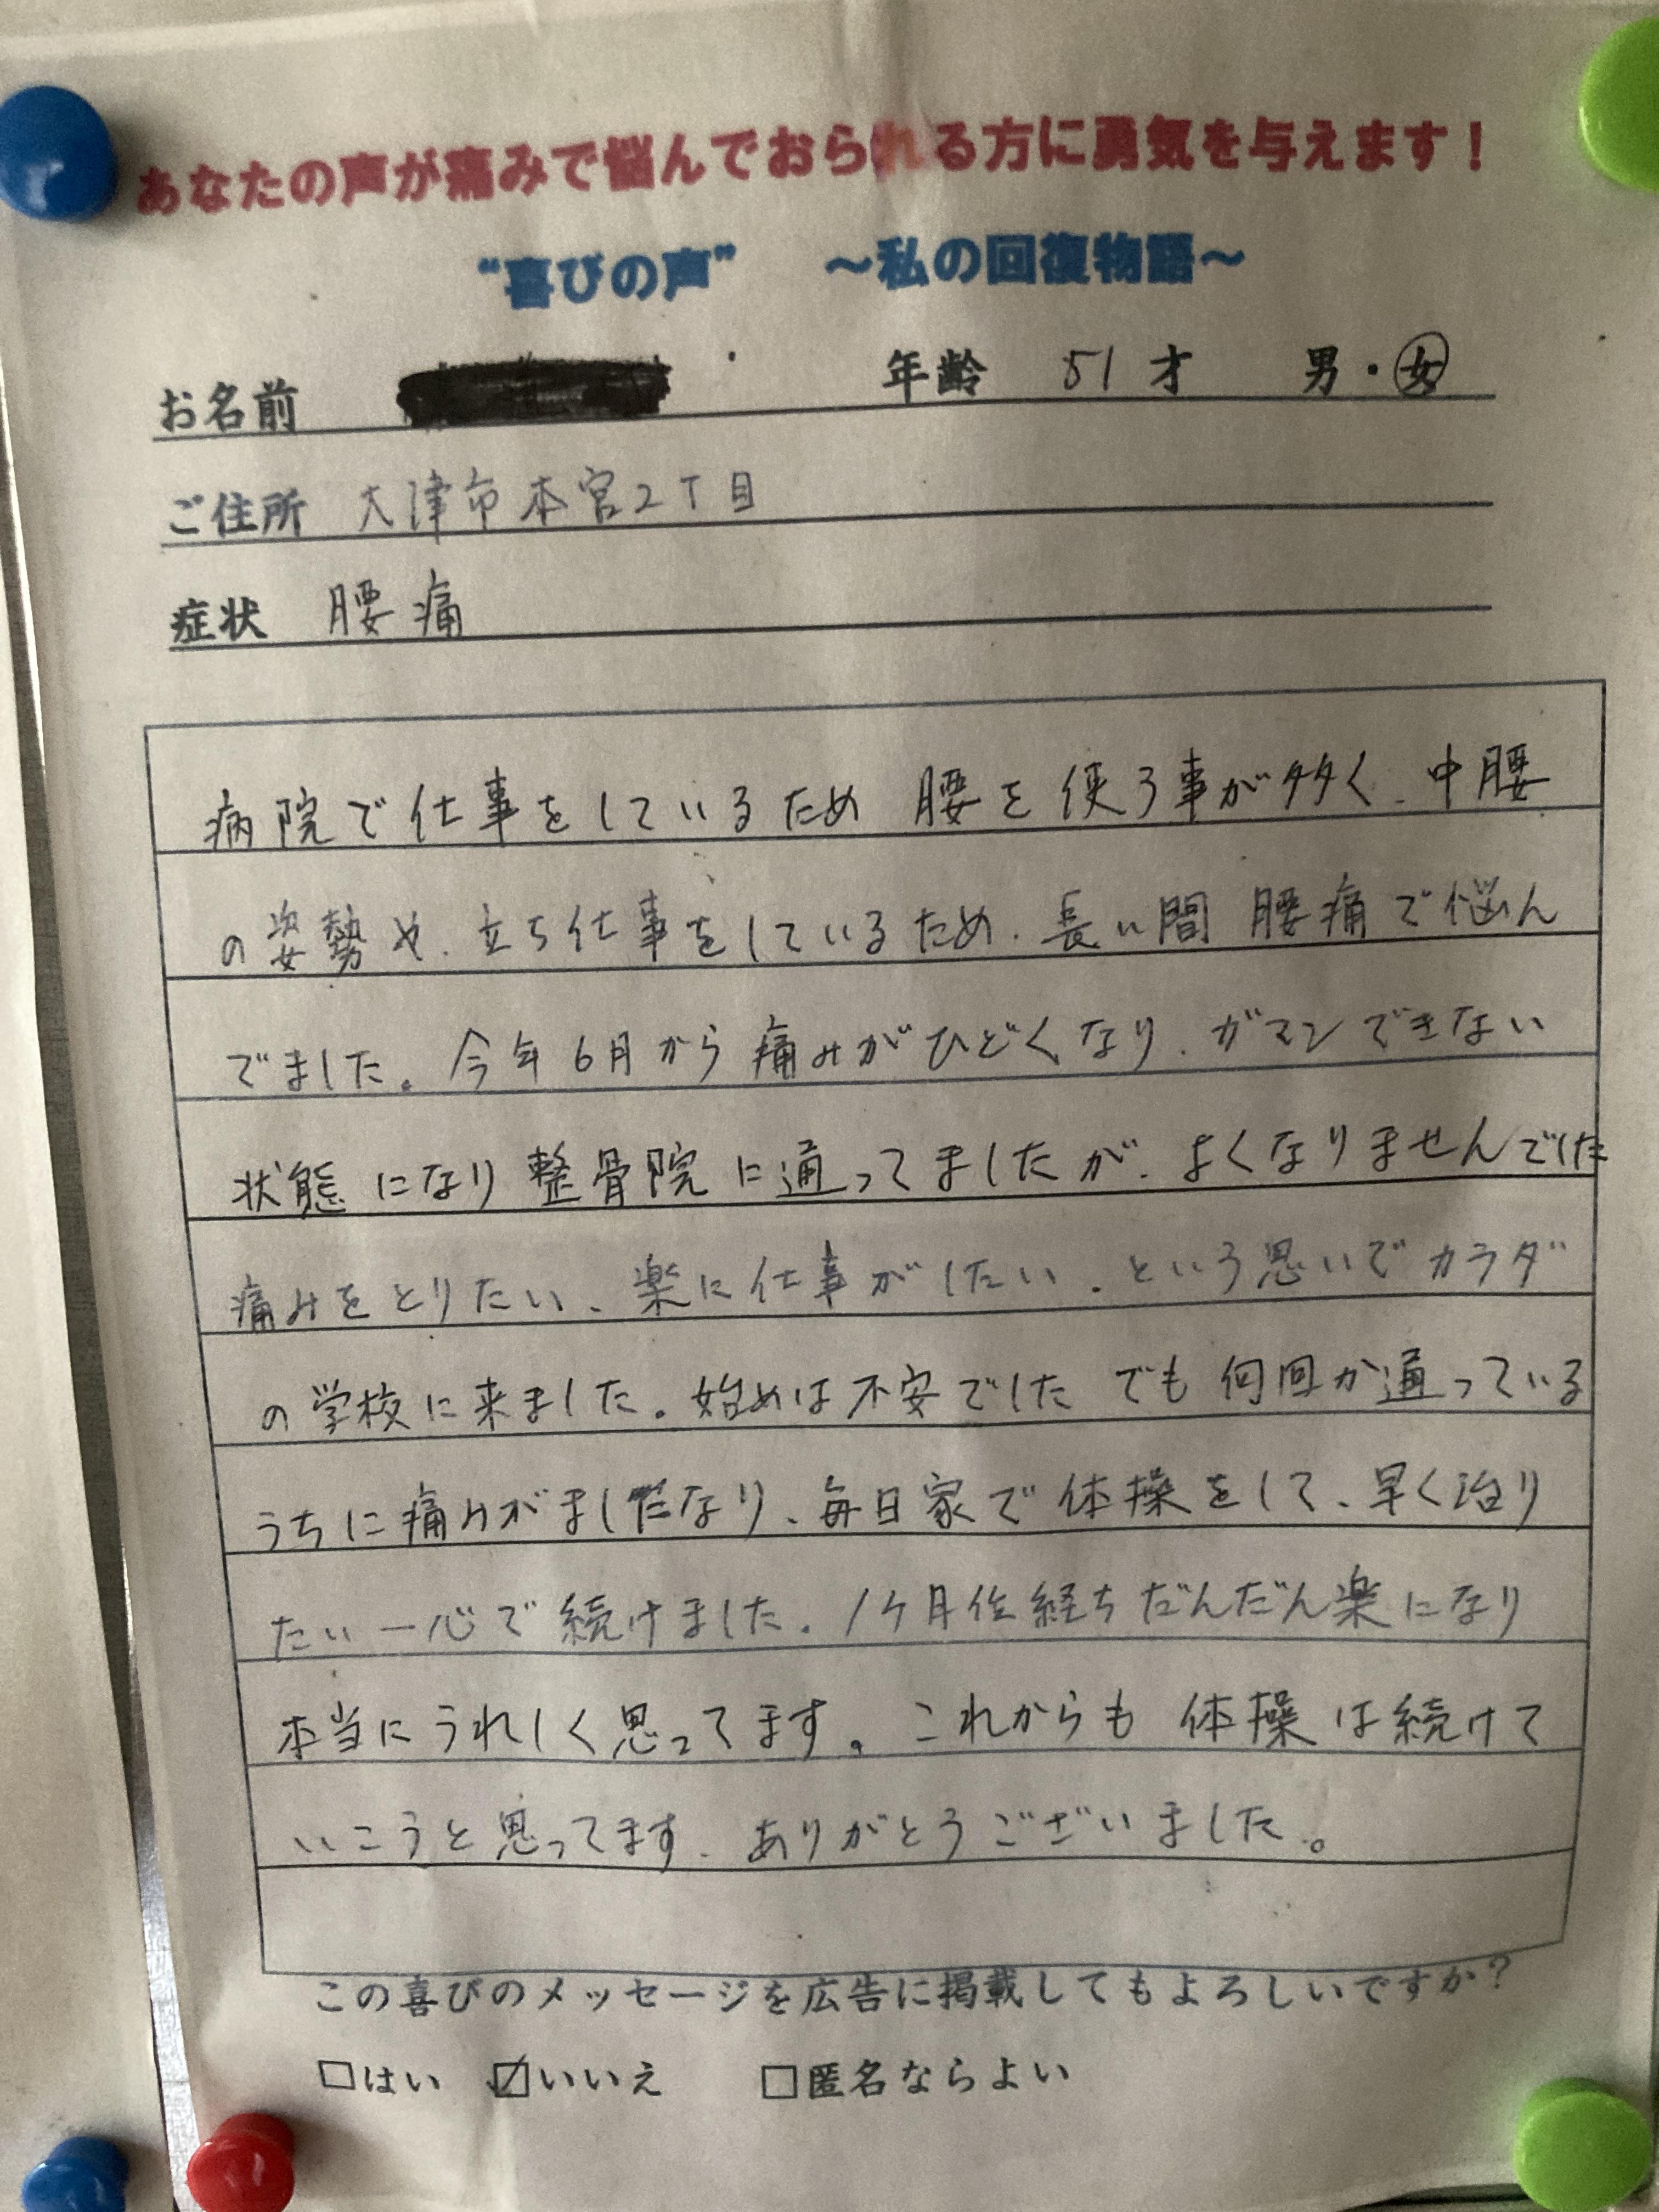 あなたの声が痛みで悩んでおられる方に勇気を与えます！
“喜びの声”　～私の回復物語～
お名前　年齢　51才　男・女
ご住所　大津市本宮2丁目
症状　腰痛
病院で仕事をしているため 腰を使う事が多く、中腰
の姿勢や、立ち仕事をしているため、長い間 腰痛で悩ん
でました。今年6月から痛みがひどくなり、ガマンできない
状態になり整骨院に通ってましたが、よくなりませんでした
痛みをとりたい、楽に仕事がしたい、という思いでカラダ
の学校に来ました。始めは不安でした でも何回か通っている
うちに痛みがましになり、毎日家で体操をして、早く治り
たい一心で続けました。1ヶ月位経ちだんだん楽になり
本当にうれしく思ってます。これからも 体操は続けて
いこうと思ってます。ありがとうございました。
この喜びのメッセージを広告に掲載してもよろしいですか？
□はい　☑いいえ　□匿名ならよい